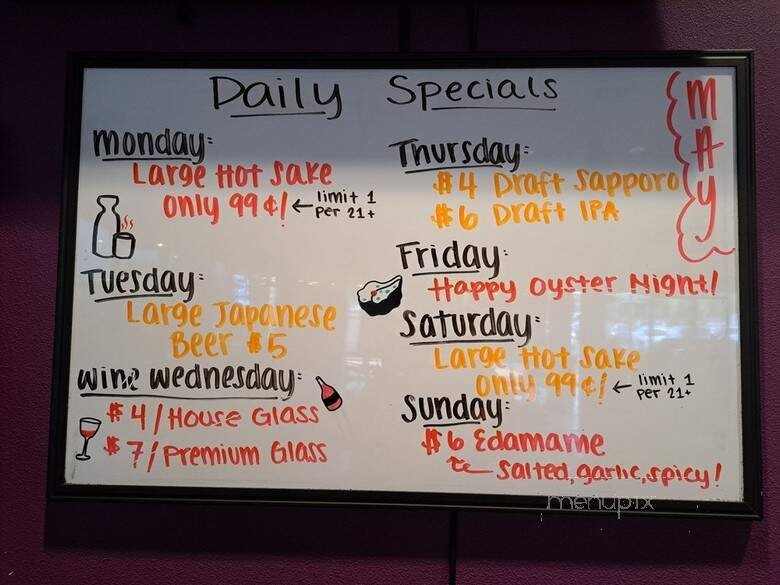 Daily Specials
MAY
monday:
Large Hot Sake
only 99¢! ← limit 1
per 21+
Tuesday:
Large Japanese
Beer $5
wine wednesday:
$4/House Glass
$7/Premium Glass
Thursday:
$4 Draft Sapporo
$6 Draft IPA
Friday:
Happy Oyster Night!
Saturday:
Large Hot Sake
only 99¢! ← limit 1
per 21+
Sunday:
$6 Edamame
Salted, garlic, spicy!
menupix